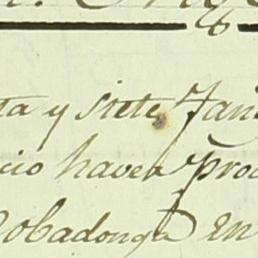 ta y siete Jan
cio haver Proc
Cobadonga En